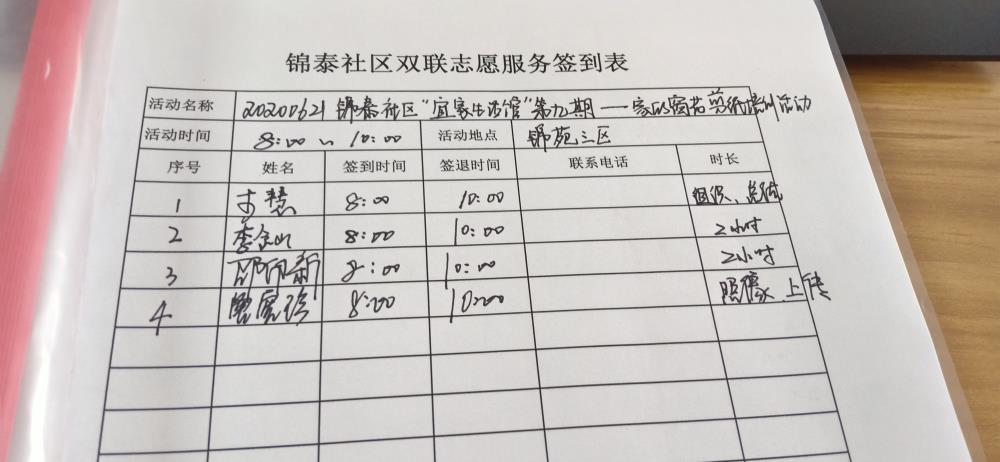 锦泰社区双联志愿服务签到表
活动名称 20200621 锦泰社区"宜家生活馆"第九期——家以窗花剪纸培训活动
活动时间 8:00~10:00 活动地点 锦苑三区
序号 姓名 签到时间 签退时间 联系电话 时长
1 李慧 8:00 10:00 组织、总结
2 李金山 8:00 10:00 2小时
3 邵佩新 8:00 10:00 2小时
4 8:00 10:00 照像 上传